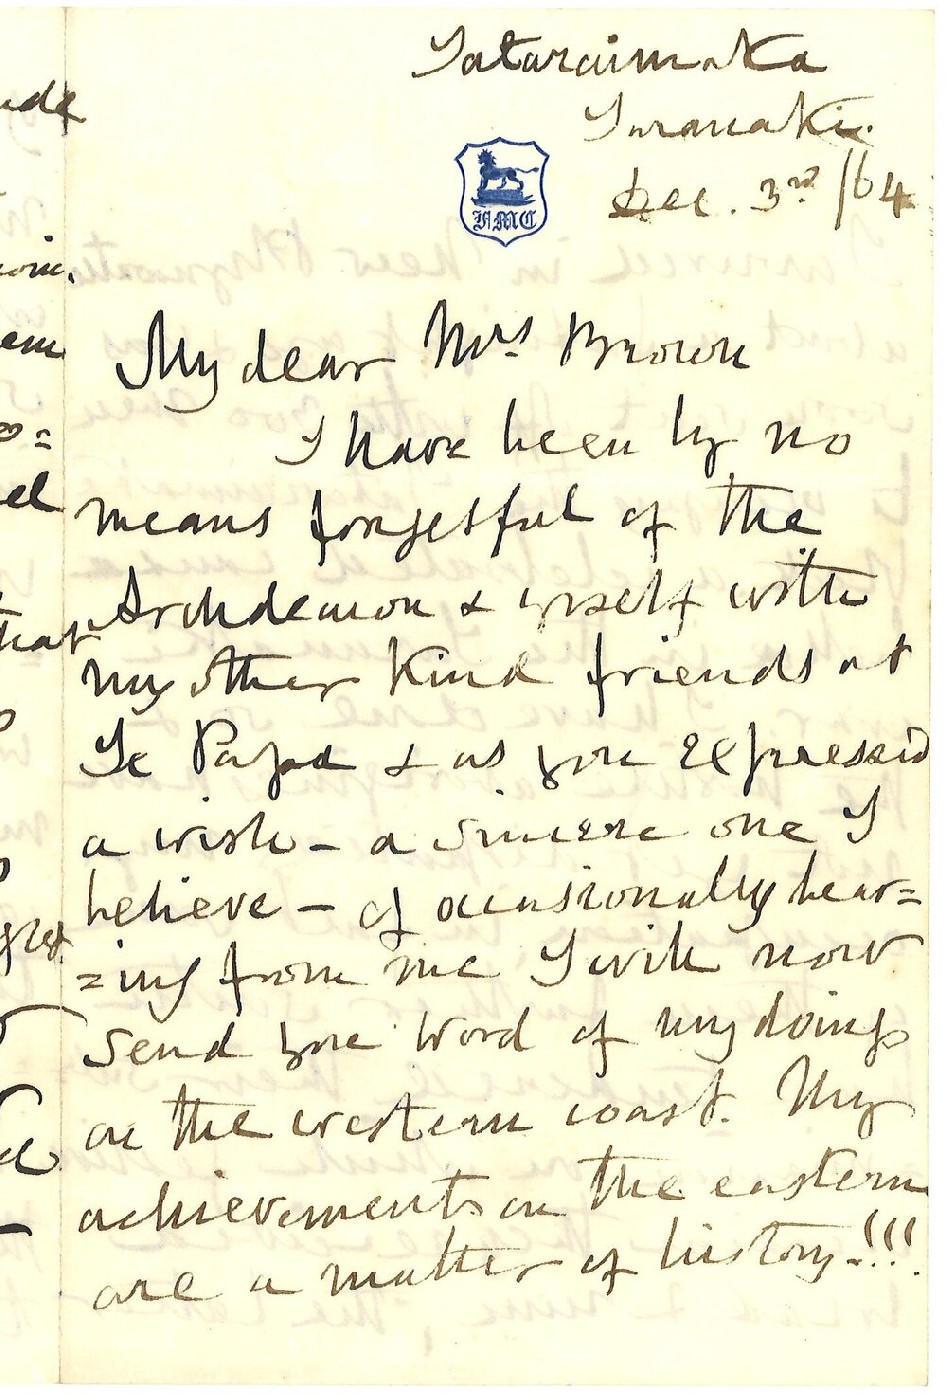 Tataraimaka
Taranaki.
Dec. 3rd /64
FMC
My dear Mrs Brown
I have been by no
means forgetful of the
Archdeacon & yrself with
my other kind friends at
Te Papa & as you expressed
a wish - a sincere one I
believe - of occasionally hear=
=ing from me I will now
send you word of my doings
on the western coast. My
achievements on the eastern
are a matter of history.!!!